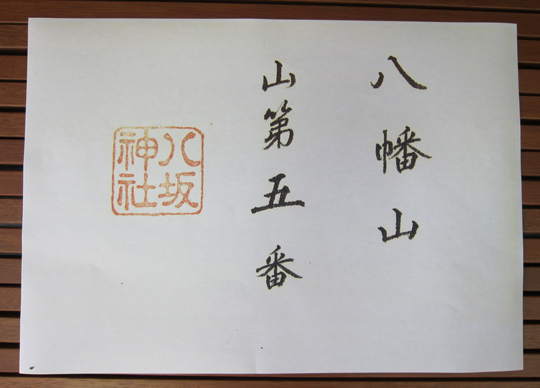 八幡山
山第五番
八坂
神社